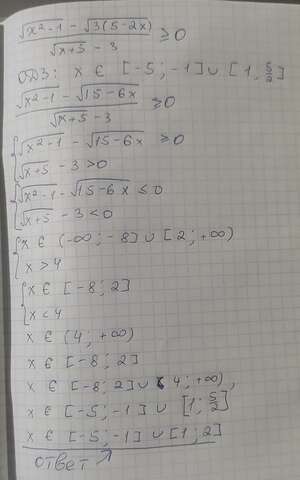 (√(x²-1) - √(3(5-2x)))/(√(x+5) - 3) ≥ 0
ОДЗ: x ∈ [-5; -1] ∪ [1; 5/2]
(√(x²-1) - √(15-6x))/(√(x+5) - 3) ≥ 0
{ √(x²-1) - √(15-6x) ≥ 0
√(x+5) - 3 > 0
{ √(x²-1) - √(15-6x) ≤ 0
√(x+5) - 3 < 0
{ x ∈ (-∞; -8] ∪ [2; +∞)
x > 4
{ x ∈ [-8; 2]
x < 4
x ∈ (4; +∞)
x ∈ [-8; 2]
x ∈ [-8; 2] ∪ (4; +∞),
x ∈ [-5; -1] ∪ [1; 5/2]
x ∈ [-5; -1] ∪ [1; 2]
ответ ↗